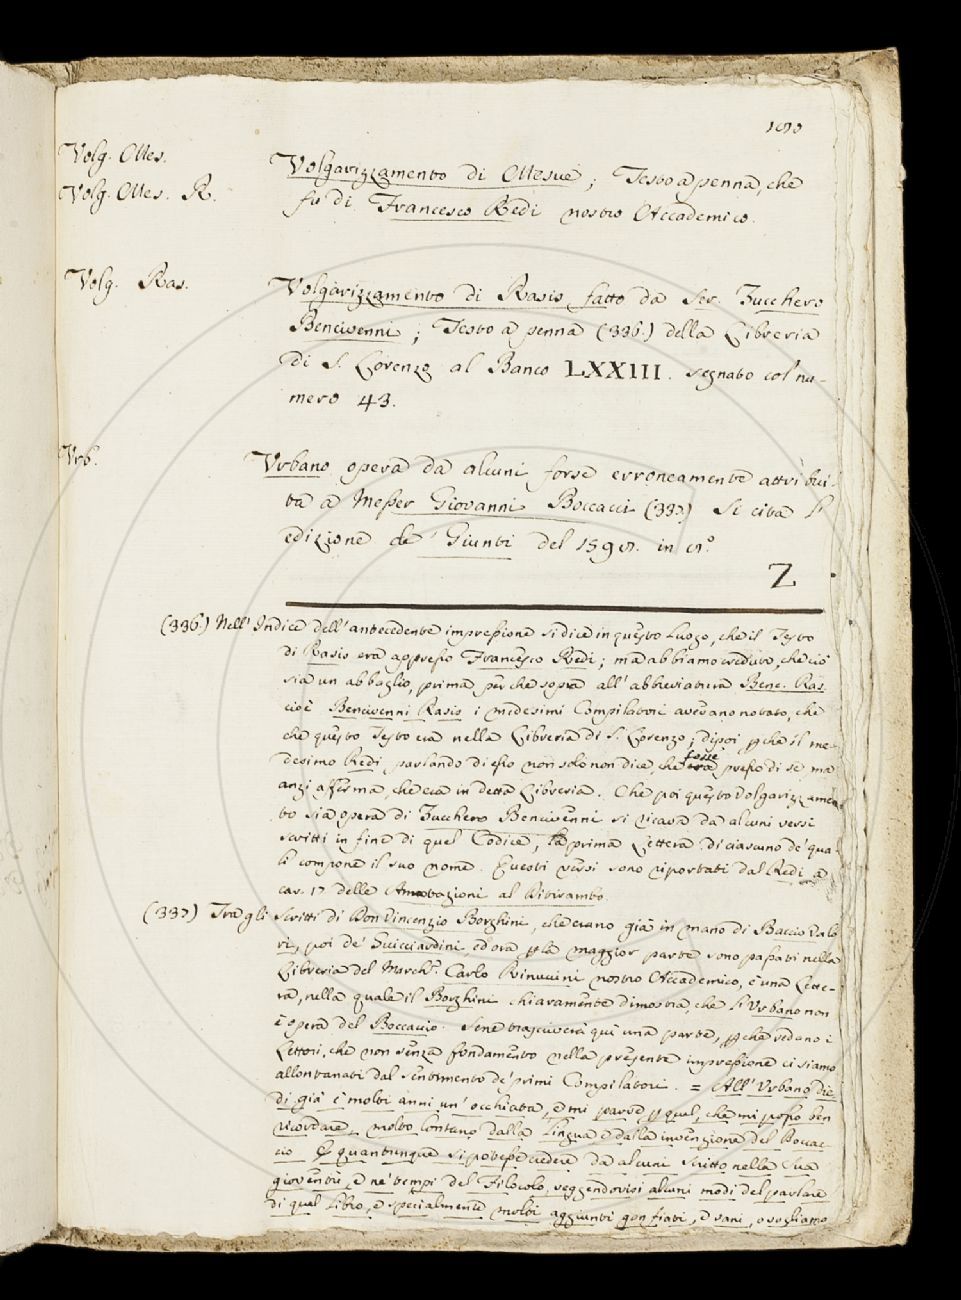 Volg. Mes.
Volg. Mes. R.
Volgarizzamento di Mesue; Testo a penna, che
fu di Francesco Redi nostro Accademico.
Volg. Ras.
Volgarizzamento di Rasis fatto da Ser. Zucchero
Bencivenni; Testo a penna (336.) della Libreria
di S. Lorenzo al Banco LXXIII. segnato col' nu-
mero 43.
Vrb.
Vrbano opera da alcuni forse erroneamente attribui-
ta a Messer Giovanni Boccacci (337.) Si cita l'
edizione de' Giunti del in
Z
(336.) Nell' Indice dell' antecedente impressione si dice in questo luogo, che il Testo
di Rasis era appresso Francesco Redi; ma abbiamo creduto, che ciò
sia un abbaglio, prima perche sopra all' abbreviatura Benc. Ras.
cioè Bencivenni Rasis i medesimi Compilatori avevano notato, che
che questo Testo era nella Libreria di S. Lorenzo; dipoi pche il me-
desimo Redi parlando di esso non solo non dice, che fosse era presso di se ma
anzi afferma, che era in detta Libreria. Che poi questo Volgarizzamen-
to sia opera di Zucchero Bencivenni si ricava da alcuni versi
scritti in fine di quel Codice, la prima Lettera di ciascuno de' qua-
li compone il suo nome. Questi versi sono riportati dal Redi a
car. 17 delle Annotazioni al Ditirambo.
(337) Tra gli scritti di Don Vincenzio Borghini, che erano già in mano di Baccio Valo-
ri, poi de' Guicciardini, ed ora p la maggior parte sono passati nella
Libreria del March.e Carlo Rinuccini nostro Accademico, è una Lette-
ra, nella quale il Borghini chiaramente dimostra, che l'Urbano non
è opera del Boccaccio. Se ne trascriverà quì una parte, pche vedano i
Lettori, che non senza fondamento nella presente impressione ci siamo
allontanati dal sentimento de' primi Compilatori. = All' Vrbano die-
di già è molti anni un' occhiata, e mi parve p quel, che mi posso ben
ricordare, molto lontano dalla lingua e dalla invenzione del Boccac-
cio E quantunque si potesse credere da alcuni scritto nella sua
gioventù, e ne' tempi del Filocolo, veggendovisi alcuni modi del parlare
di quel Libro, e specialmente molti aggiunti gonfiati, e vani, o vogliamo